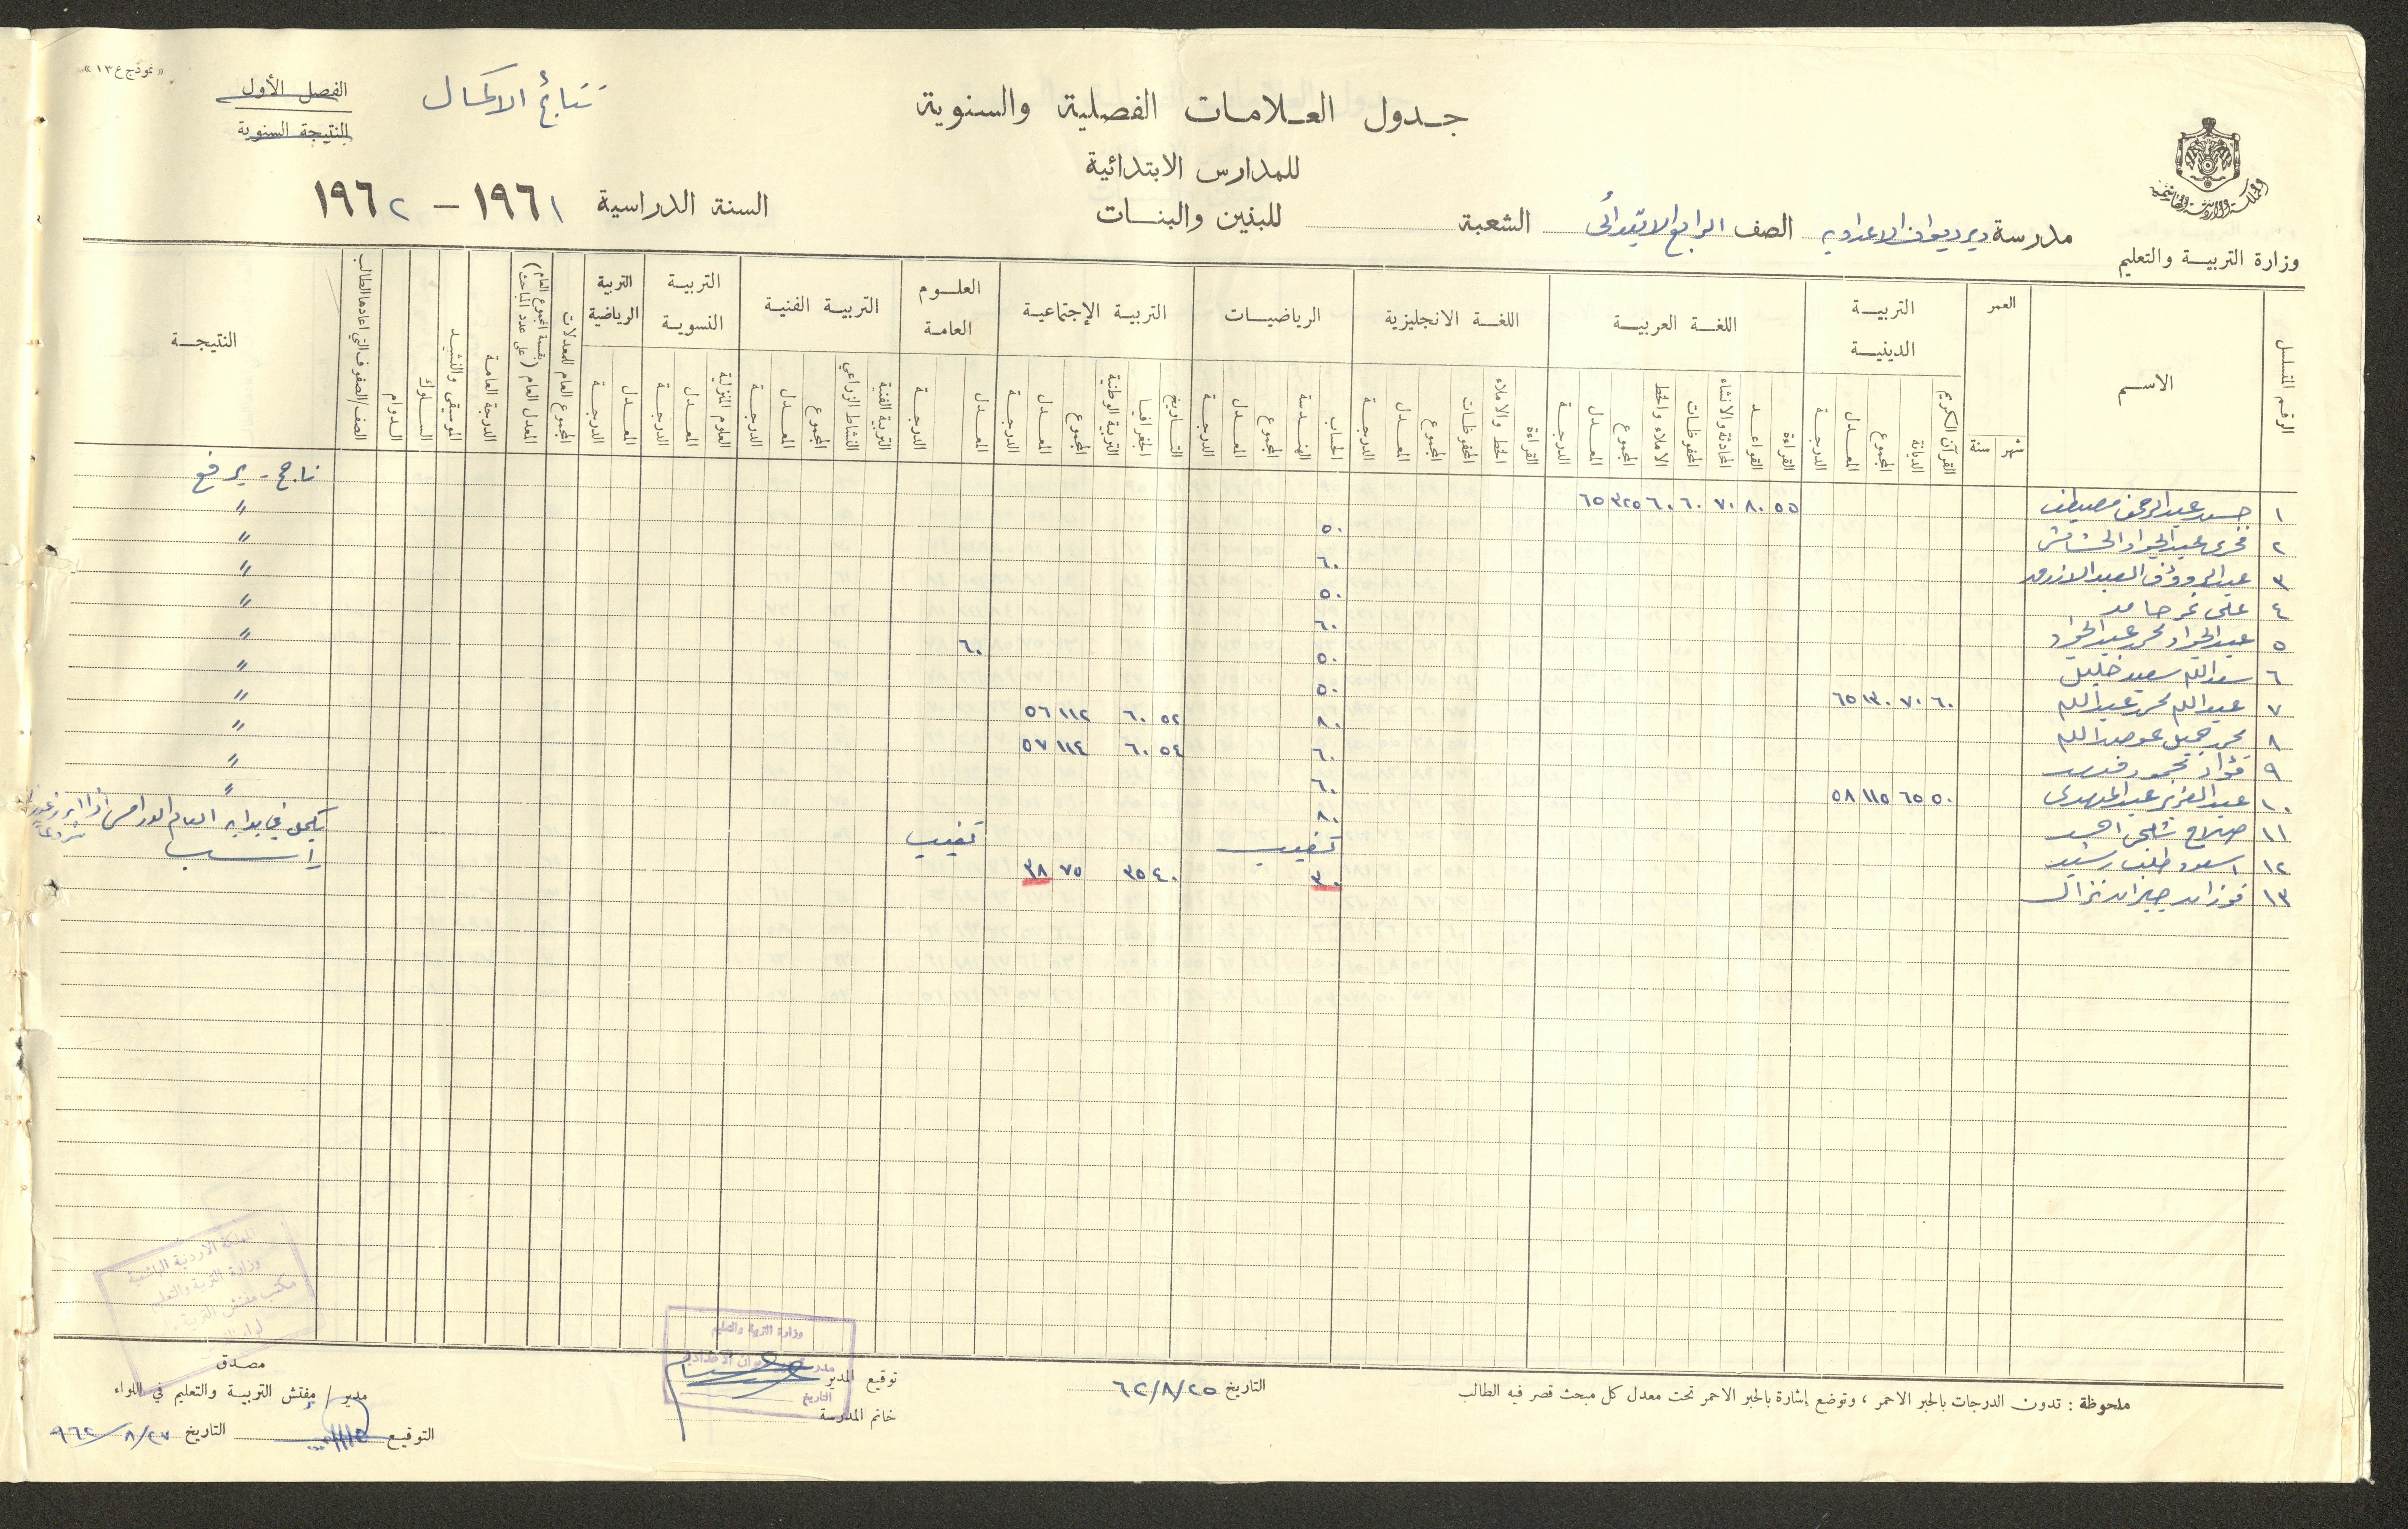 «نموذج ع ١٣»
الفصل الأول
النتيجة السنوية
نتائج الاكمال
جدول العلامات الفصلية والسنوية
للمدارس الابتدائية
للبنين والبنات
المملكة الاردنية الهاشمية
وزارة التربية والتعليم
مدرسة دير ديوان الاعدادية الصف الرابع الابتدائي الشعبة
السنة الدراسية ١٩٦١ – ١٩٦٢
الرقم المتسلسل
الاسم
العمر
شهر سنة
التربية الدينية
القرآن الكريم الديانة المجموع المعدل الدرجة
اللغة العربية
القراءة القواعد المحادثة والانشاء المحفوظات الاملاء والخط المجموع المعدل الدرجة
اللغة الانجليزية
القراءة الخط والاملاء المحفوظات المجموع المعدل الدرجة
الرياضيات
الحساب الهندسة المجموع المعدل الدرجة
التربية الإجتماعية
التاريخ الجغرافيا التربية الوطنية المجموع المعدل الدرجة
العلوم العامة
المعدل الدرجة
التربية الفنية
التربية الفنية النشاط الزراعي المجموع المعدل الدرجة
التربية النسوية
العلوم المنزلية المعدل الدرجة
التربية الرياضية
المعدل الدرجة
المجموع العام للمعدلات
المعدل العام (بقسمة المجموع العام على عدد المباحث)
الدرجة العامة
الموسيقى والنشيد
السلوك
الدوام
الصف/الصفوف التي اعادها الطالب
النتيجة
١ حسن عبد الرحمن مصطفى ٥٥ ٨٠ ٧٠ ٦٠ ٦٠ ٣٢٥ ٦٥ ناجح - يرفع
٢ فخري عبد الجواد ٥٠ "
٣ عبد الرؤوف العبد ٦٠ "
٤ علي نمر حامد ٥٠ "
٥ عبد الجواد محمد عبد الجواد ٦٠ "
٦ سعد الله سعيد خليل ٥٠ ٦٠ "
٧ عبد الله محمد عبد الله ٦٠ ٧٠ ١٣٠ ٦٥ ٥٠ "
٨ محمد جميل عوض الله ٨٠ ٥٢ ٦٠ ١١٢ ٥٦ "
٩ فؤاد محمود ٦٠ ٥٤ ٦٠ ١١٤ ٥٧ "
١٠ عبد العزيز عبد المهدي ٥٠ ٦٥ ١١٥ ٥٨ ٦٠ "
١١ صلاح شلبي احمد ٨٠ "
١٢ اسعد طلب رشيد تغيب تغيب يكمل في بداية العام الدراسي اذا ابرز عذرا شرعيا
١٣ فوزان جبران نزال ٣٠ ٤٠ ٣٥ ٧٥ ٣٨ راسب
ملحوظة : تدون الدرجات بالحبر الاحمر ، وتوضع إشارة بالحبر الاحمر تحت معدل كل مبحث قصر فيه الطالب
التاريخ ٦٢/٨/٢٥
توقيع المدير
خاتم المدرسة
وزارة التربية والتعليم
التاريخ
المملكة الاردنية الهاشمية
وزارة التربية والتعليم
مكتب مفتش التربية
مصدق
مدير / مفتش التربية والتعليم في اللواء
التوقيع التاريخ ٩٦٢/٨/٢٧